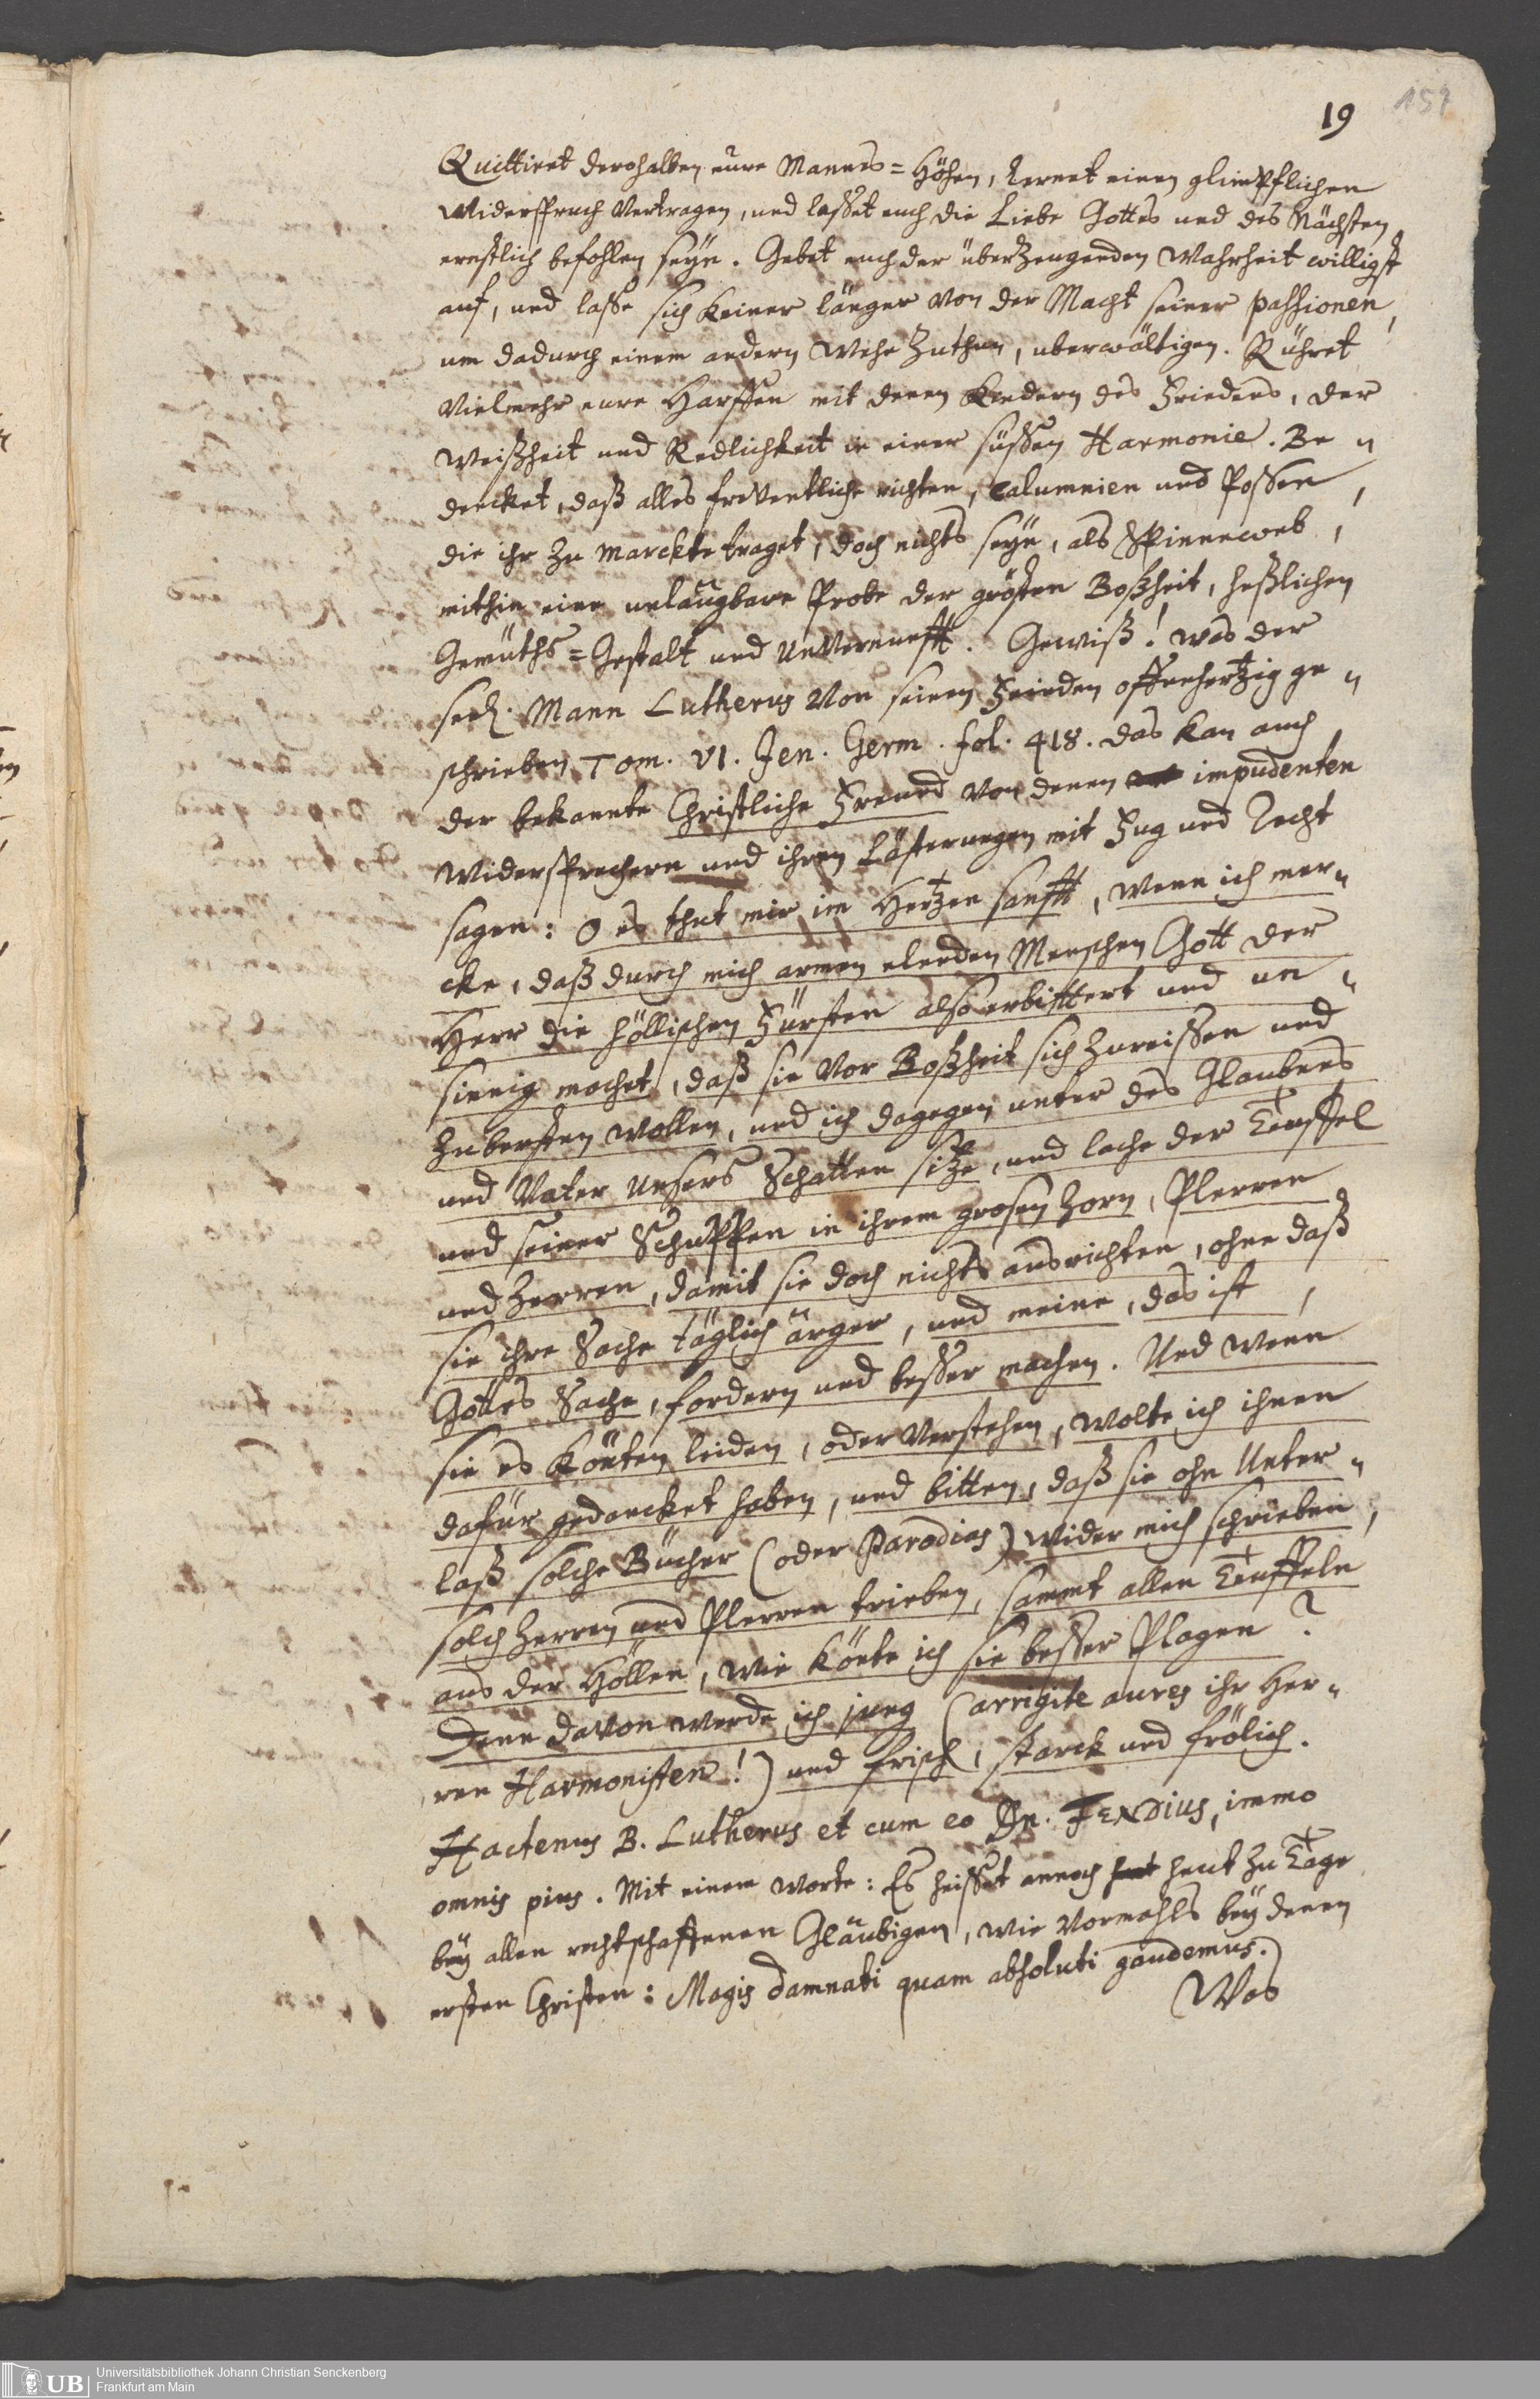 19
159
Quittiret derohalben eure Mannes=Höhen, lernet einen glimpflichen
Widerspruch Vertragen, und lasset euch die Liebe Gottes und des Nächsten
ernstlich befohlen seyn. Gebet euch der überzeugenden Wahrheit willigst
auf, und lasse sich keiner länger von der Macht seiner passionen,
um dadurch einem andern Wehe zuthun, uberwältigen. Rühret
Vielmehr eure Harffen mit denen Kindern des Friedens, der
Weißheit und Redlichkeit in einer süssen Harmonie. Be"
dencket, daß alles freventliche richten, calumnien und Possen,
die ihr zu Marckte traget, doch nichts seyn, als Spinneweb,
mithin eine unlaügbare Probe der grösten Boßheit, heßlichen
Gemüths=Gestalt und Unvernunfft. Gewiß! was der
seel. Mann Lutherus Von seinen Feinden offenhertzig ge"
schrieben Tom. VI. Jen. Germ. fol. 418. das kan auch
der bekannte Christliche Freund von denen impudenten
Widersprechern und ihren Lästerungen mit Fug und Recht
sagen: O es thut mir im Hertzen sanfft, wenn ich mer"
cke, daß durch mich armen elenden Menschen Gott der
Herr die höllischen Fürsten also erbittert und un"
sinnig machet, daß sie Vor Boßheit sich zureissen und
zubersten wollen, und ich dagegen unter des Glaubens
und Vater Unsers Schatten sitze, und lache der Teuffel
und seiner Schuppen in ihrem grosen Zorn, Plerren
und Zerren, damit sie doch nichts ausrichten, ohne daß
sie ihre Sache täglich ärger, und meine, das ist,
Gottes Sache, fordern und besser machen. Und wenn
sie es könten leiden, oder Verstehen, wolte ich ihnen
dafür gedancket haben, und bitten, daß sie ohn Unter"
laß solche Bücher (oder Parodias) wider mich schrieben,
solch Zerren und Plerren trieben, sammt allen Teuffeln
aus der Höllen, wie könte ich sie besser Plagen?
Denn davon werde ich jung (arrigite aures ihr Her"
ren Harmonisten!) und frisch, starck und frölich.
Hactenus B. Lutherus et cum eo Dn. Fendius, immo
omnis pius. Mit einem Worte: Es heisset annoch heut zu Tage
bey allen rechtschaffenen Gläubigen, wie Vormahls bey denen
ersten Christen: Magis damnati quam absoluti gaudemus.
Was
UB Universitätsbibliothek Johann Christian Senckenberg
Frankfurt am Main